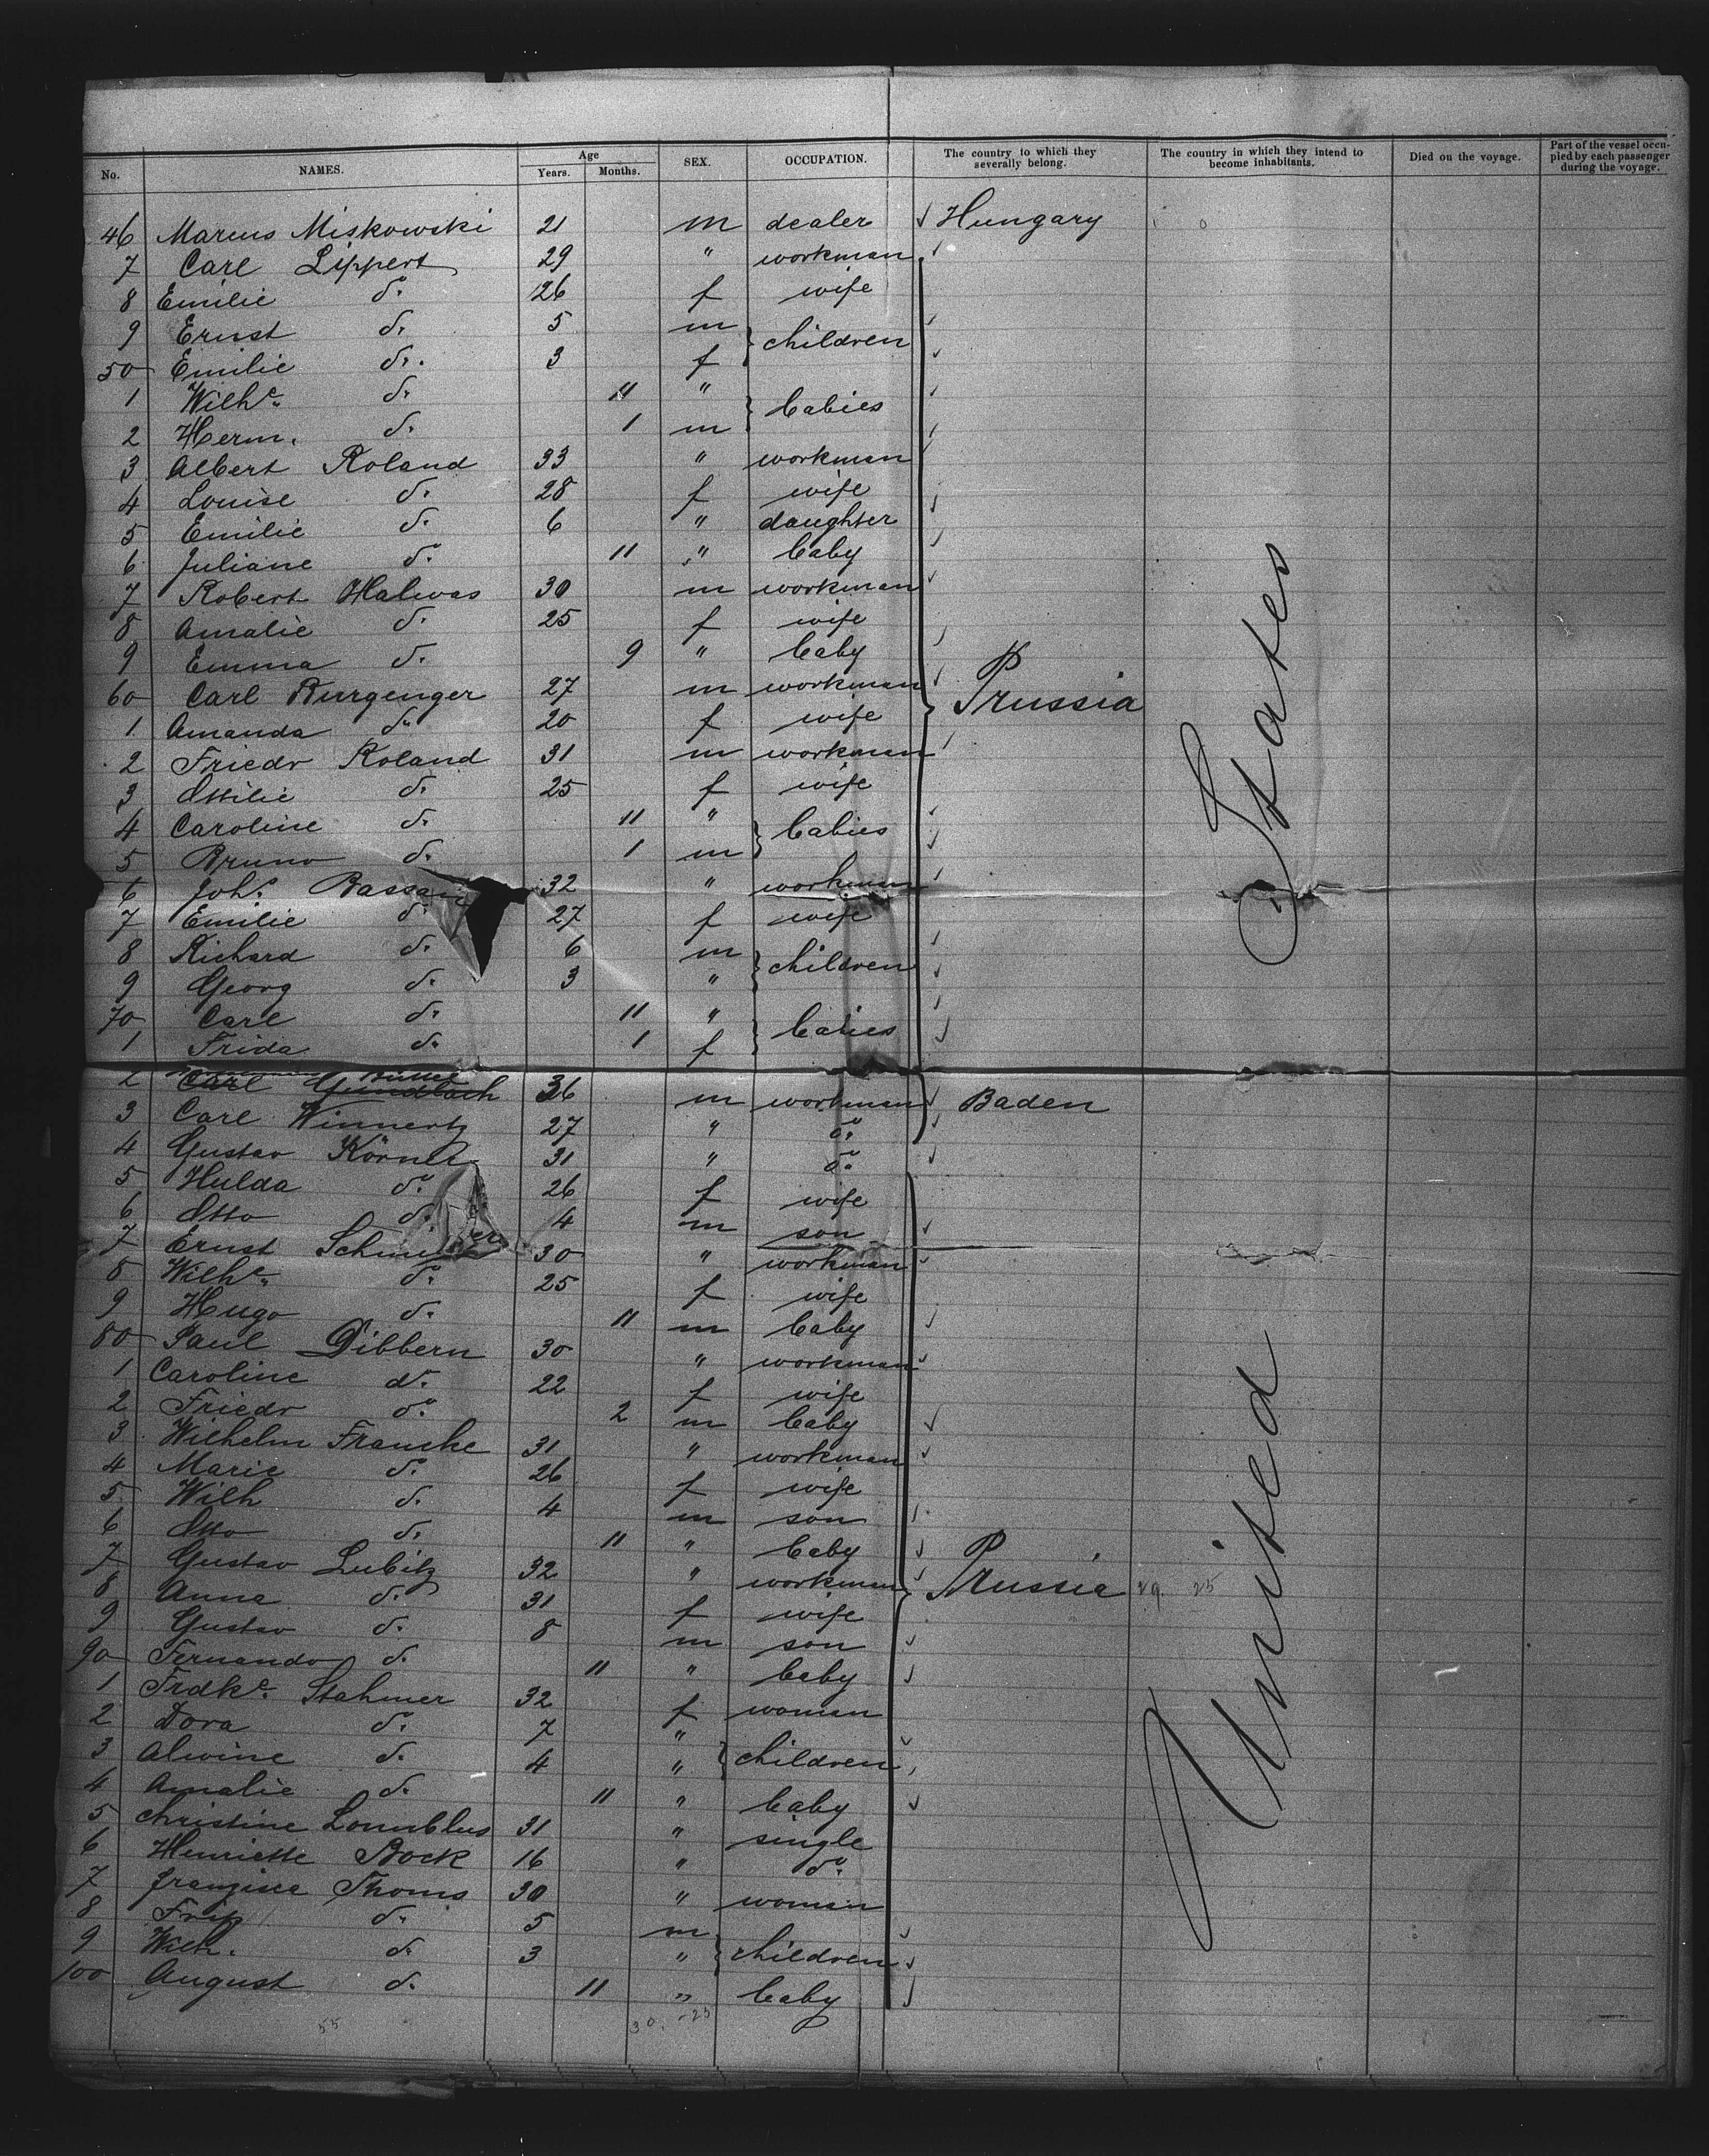 No. NAMES. Age Years. Months. SEX. OCCUPATION. The country to which they severally belong. The country in which they intend to become inhabitants. Died on the voyage. Part of the vessel occupied by each passenger during the voyage.
46 Marcus Miskowski 21 m dealer Hungary
7 Carl Lippert 29 " workman
8 Emilie do. 26 f wife
9 Ernst do. 5 m children
50 Emilie do. 3 f
1 Wilhe. do. 11 " babies
2 Herm. do. 1 m
3 Albert Roland 33 " workman
4 Louise do. 28 f wife
5 Emilie do. 6 " daughter
6 Juliane do. 11 " baby
7 Robert Halwas 30 m workman
8 Amalie do. 25 f wife
9 Emma do. 9 " baby
60 Carl Burgenger 27 m workman Prussia
1 Amanda do. 20 f wife
2 Friedr Roland 31 m workman
3 Ottilie do. 25 f wife
4 Caroline do. 11 " babies
5 Bruno do. 1 m
6 Johs. 32 " workman
7 Emilie do. 27 f wife
8 Richard do. 6 m children
9 Georg do. 3 "
70 Carl do. 11 " babies
1 Frida do. 1 f
2 Carl Gundlach 36 m workman Baden
3 Carl Winnertz 27 " do.
4 Gustav Körner 31 " do.
5 Hulda do. 26 f wife
6 Otto do. 4 m son
7 Ernst 30 " workman
8 Wilhe. do. 25 f wife
9 Hugo do. 11 m baby
80 Paul Dibbern 30 " workman
1 Caroline do. 22 f wife
2 Friedr do. 2 m baby
3 Wilhelm Franche 31 " workman
4 Marie do. 26 f wife
5 Wilh do. 4 m son
6 Otto do. 11 " baby
7 Gustav Lubitz 32 " workman Prussia 29. 25
8 Anna do. 31 f wife
9 Gustav do. 8 m son
90 Fernando do. 11 " baby
1 Frdke. Stahmer 32 f woman
2 Dora do. 7 " children
3 Alwine do. 4 "
4 Amalie do. 11 " baby
5 Christine 31 " single
6 Henriette Bock 16 " do.
7 Franzisca Thoms 30 " woman
8 Fritz do. 5 m children
9 Wilh. do. 3 "
100 August do. 11 " baby
United States
55 30. -25